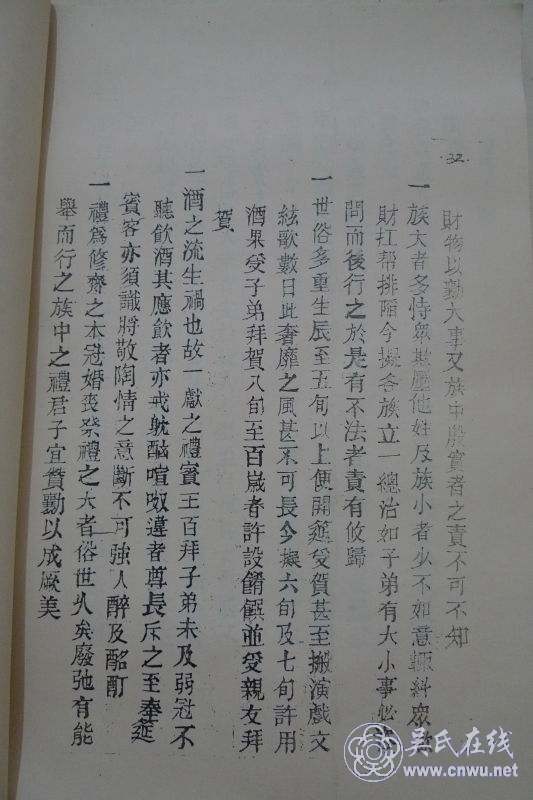 32
財物以勷大事又族中殷實者之責不可不知
一族大者多恃眾欺壓他姓及族小者少不如意輒糾眾
財扛幫排陷今擬各族立一總治如子弟有大小事必
問而後行之於是有不法者責有攸歸
一世俗多重生辰至五旬以上便開筵受賀甚至搬演戲文
絃歌數日此奢靡之風甚不可長今擬六旬及七旬許用
酒果受子弟拜賀八旬至百歲者許設餚饌並受親友拜
賀
一酒之流生禍也故一獻之禮賓主百拜子弟未及弱冠不
聽飲酒其應飲者亦戒躭酗喧呶違者尊長斥之至奉筵
賓客亦須識將敬陶情之意斷不可強人醉及酩酊
一禮為修齋之本冠婚喪祭禮之大者俗世久矣廢弛有能
舉而行之族中之禮君子宜贊勷以成厥美
吳氏在线
www.cnwu.net